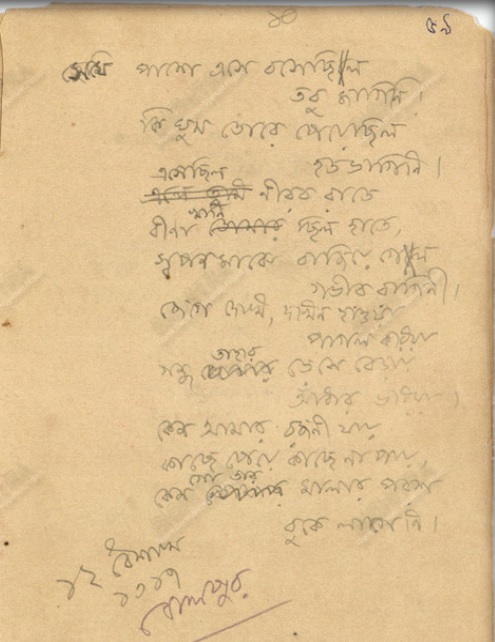 ৫৯
সেযে পাশে এসে বসেছিল
তবু জাগিনি।
কি ঘুম তোরে পেয়েছিল
হতভাগিনি।
এসেছিল নীরব রাতে
বীণা খানি ছিল হাতে,
স্বপনমাঝে বাজিয়ে গেল
গভীর রাগিণী।
জেগে দেখি, দখিন হাওয়া
পাগল করিয়া
গন্ধ তাহার ভেসে বেড়ায়
আঁধার ভরিয়া।
কেন আমার রজনী যায়
কাছে পেয়ে কাছে না পায়,
কেন গো তার মালার পরশ
বুকে লাগেনি।
১২ বৈশাখ
১৩১৭
বোলপুর